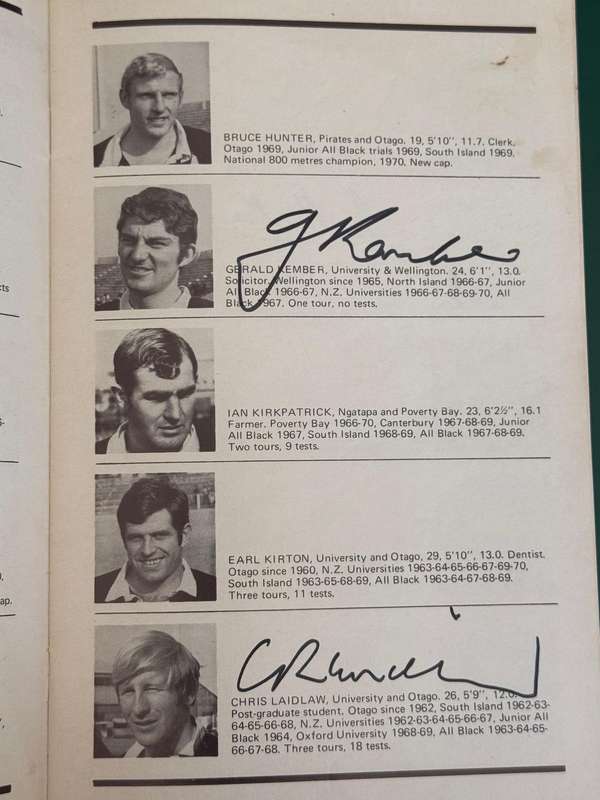 BRUCE HUNTER, Pirates and Otago. 19, 5'10'', 11.7. Clerk,
Otago 1969, Junior All Black trials 1969, South Island 1969.
National 800 metres champion, 1970. New cap.
G Kember
GERALD KEMBER, University & Wellington. 24, 6'1'', 13.0.
Solicitor. Wellington since 1965, North Island 1966-67, Junior
All Black 1966-67, N.Z. Universities 1966-67-68-69-70, All
Black 1967. One tour, no tests.
IAN KIRKPATRICK, Ngatapa and Poverty Bay. 23, 6'2½'', 16.1
Farmer. Poverty Bay 1966-70, Canterbury 1967-68-69, Junior
All Black 1967, South Island 1968-69, All Black 1967-68-69.
Two tours, 9 tests.
EARL KIRTON, University and Otago, 29, 5'10'', 13.0. Dentist.
Otago since 1960, N.Z. Universities 1963-64-65-66-67-69-70,
South Island 1963-65-68-69, All Black 1963-64-67-68-69.
Three tours, 11 tests.
CRLaidlaw
CHRIS LAIDLAW, University and Otago. 26, 5'9'', 12.0.
Post-graduate student. Otago since 1962, South Island 1962-63-
64-65-66-68, N.Z. Universities 1962-63-64-65-66-67, Junior All
Black 1964, Oxford University 1968-69, All Black 1963-64-65-
66-67-68. Three tours, 18 tests.
cts
ap.